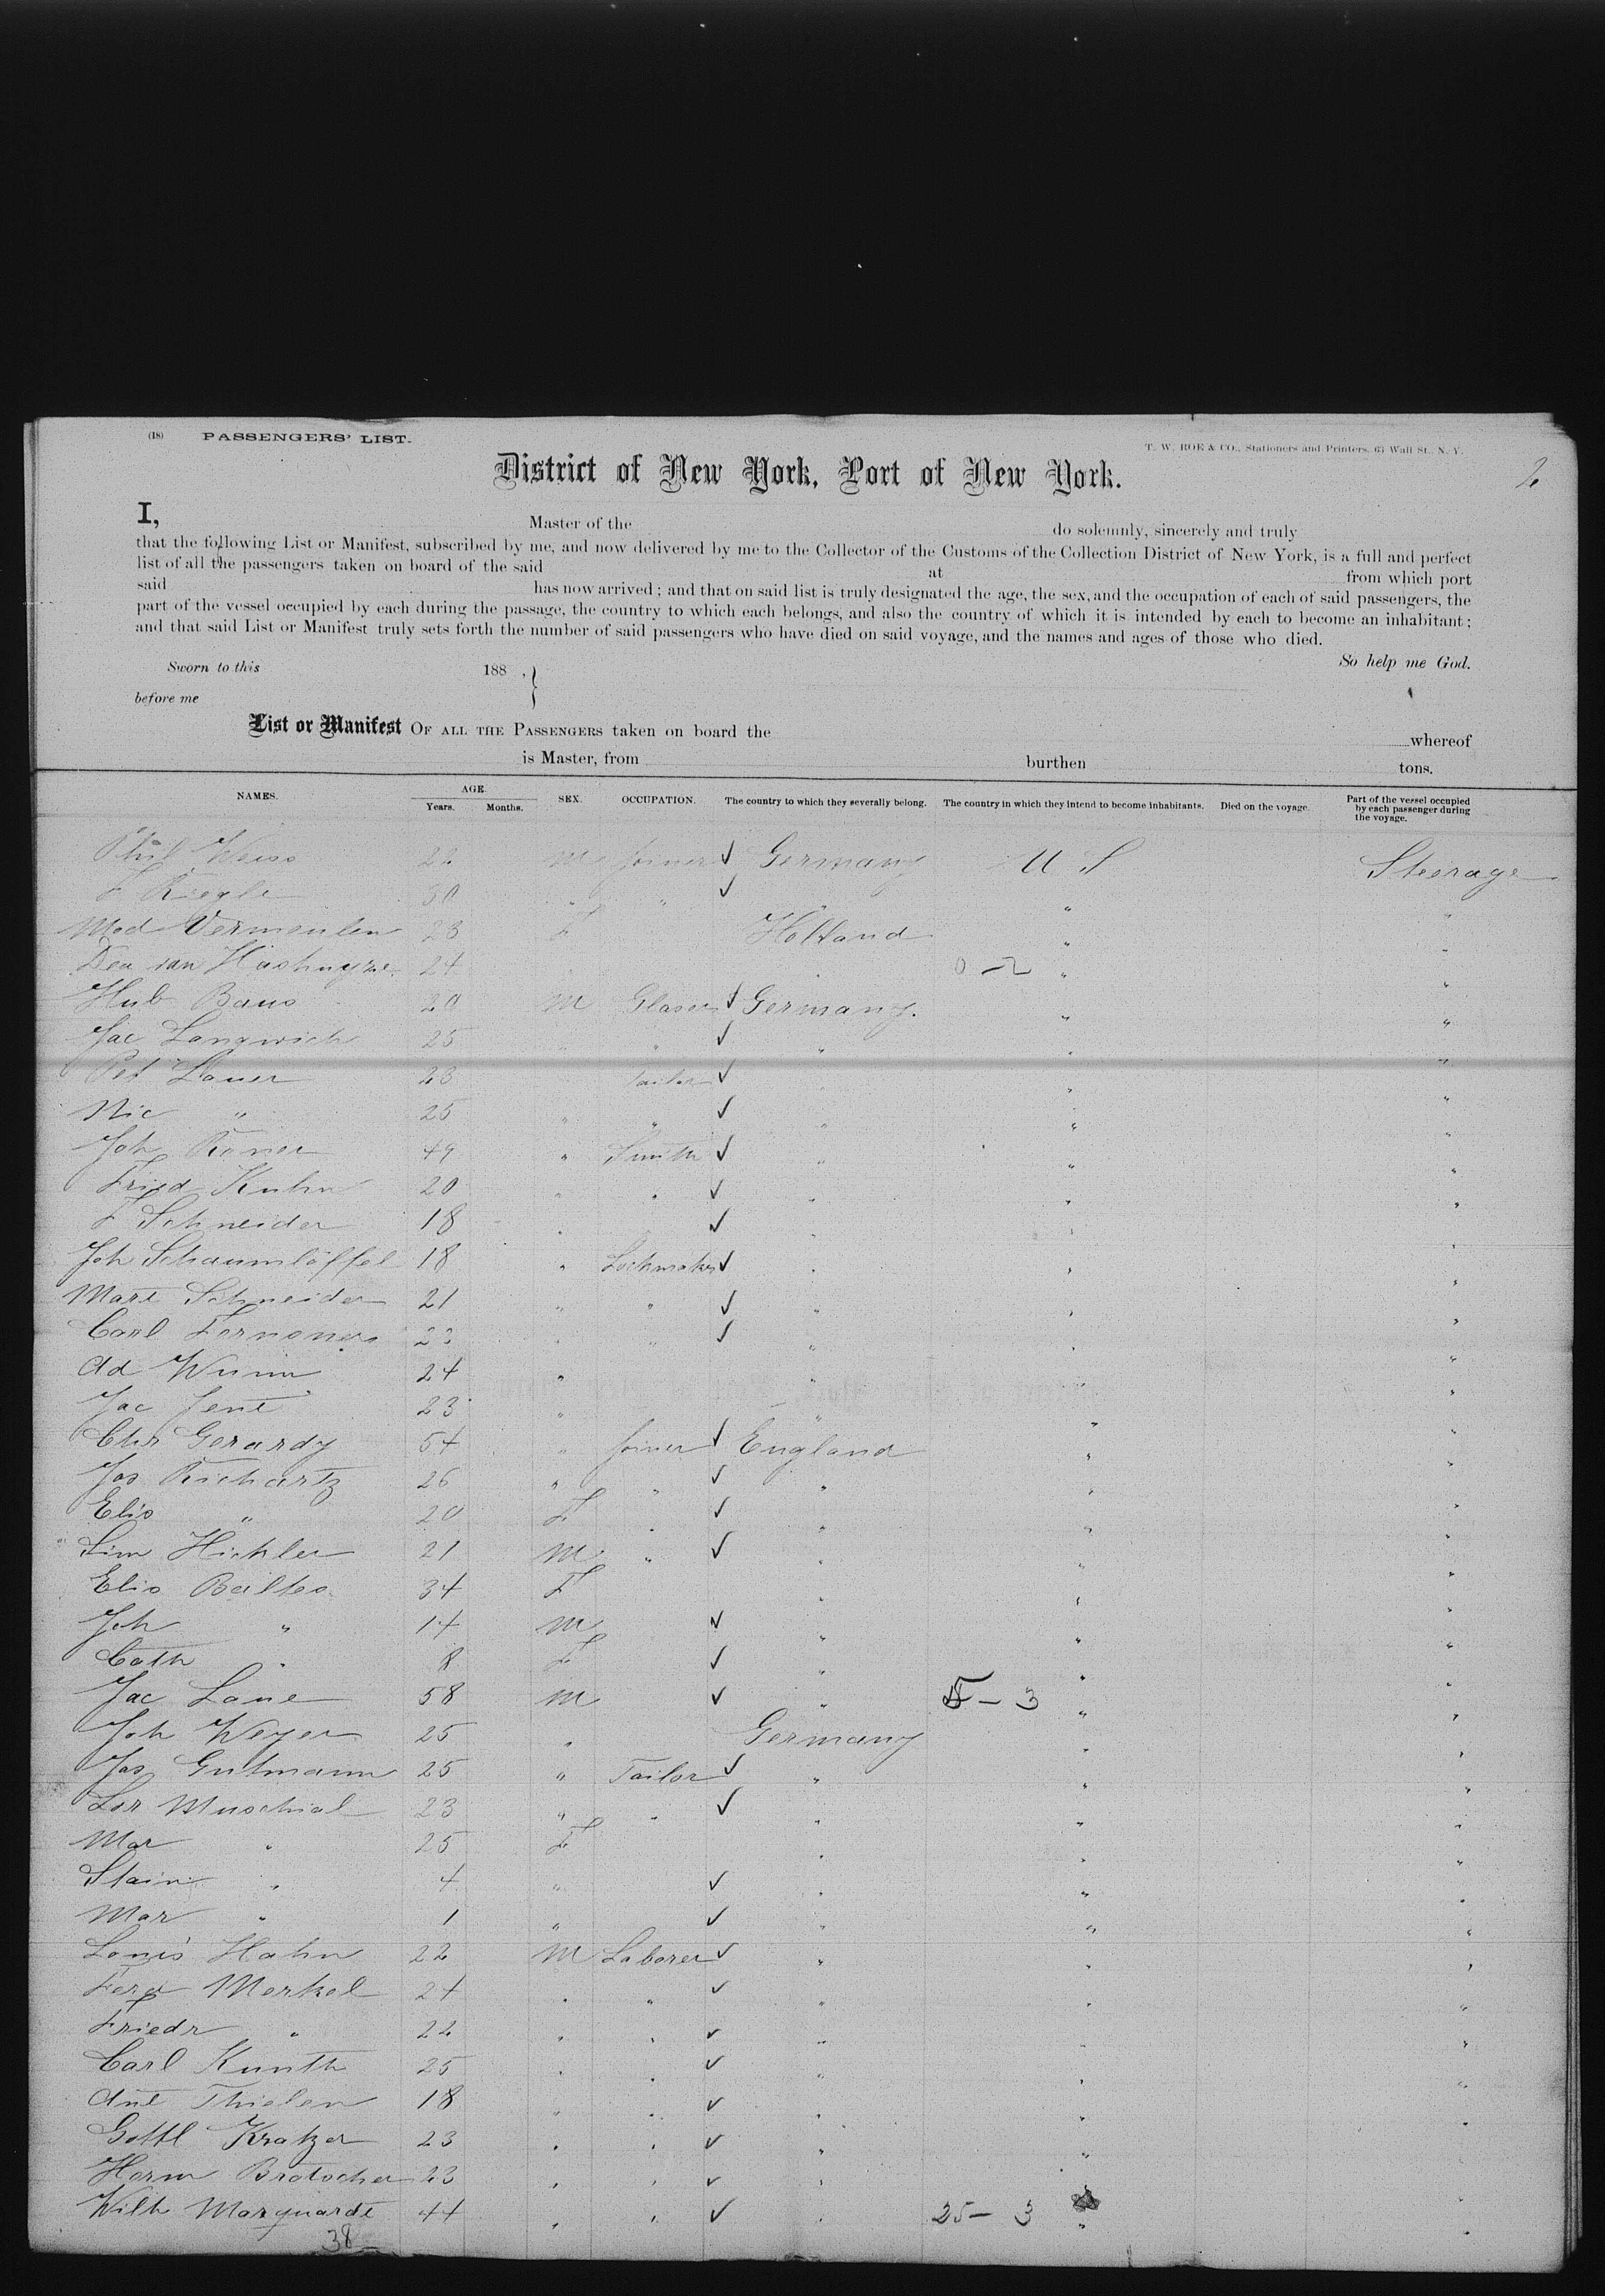 (18) PASSENGERS' LIST.
T. W. ROE & CO., Stationers and Printers, 65 Wall St., N. Y.
2
District of New York, Port of New York.
I, Master of the do solemnly, sincerely and truly
that the following List or Manifest, subscribed by me, and now delivered by me to the Collector of the Customs of the Collection District of New York, is a full and perfect
list of all the passengers taken on board of the said at from which port
said has now arrived; and that on said list is truly designated the age, the sex, and the occupation of each of said passengers, the
part of the vessel occupied by each during the passage, the country to which each belongs, and also the country of which it is intended by each to become an inhabitant;
and that said List or Manifest truly sets forth the number of said passengers who have died on said voyage, and the names and ages of those who died.
So help me God.
Sworn to this 188 , }
before me
List or Manifest OF ALL THE PASSENGERS taken on board the whereof
is Master, from burthen tons.
NAMES. AGE. Years. Months. SEX. OCCUPATION. The country to which they severally belong. The country in which they intend to become inhabitants. Died on the voyage. Part of the vessel occupied by each passenger during the voyage.
Phil Weiss 22 M Joiner ✓ Germany U S Steerage
F Riegle 30 " " ✓ " " "
Mad Vermeulen 23 F Holland " "
24 " " 0-2 " "
Hub Baus 20 M Glaser ✓ Germany. " "
Jac Langwich 25 " " ✓ " " "
Pet Lauer 23 Tailor ✓ " " "
Nic " 25 " " ✓ " " "
Joh 49 " Smith ✓ " " "
Fried Kuhn 20 " " ✓ " " "
F Schneider 18 " ✓ " " "
Joh Schaumlöffel 18 " Lockmaker ✓ " " "
Mart Schneider 21 " " ✓ " " "
Carl 23 " " ✓ " " "
Ad 24 " " " "
Jac Jent 23 " " " "
Chr Gerardy 54 " Joiner ✓ England " "
Jos Richartz 26 " " ✓ " " "
Elis " 20 F " ✓ " " "
Sim Hichler 21 M " ✓ " " "
Elis Baltes 34 F " " "
Joh " 14 M ✓ " " "
Cath " 8 F ✓ " " "
Jac Laue 58 M ✓ " 5-3 " "
Joh Weyer 25 " Germany " "
Jos Gutmann 25 " Tailor ✓ " " "
Lor Muschial 23 " " ✓ " " "
Mar " 25 F " " "
Stain " 4 " ✓ " " "
Mar " 1 " ✓ " " "
Louis Hahn 22 M Laborer ✓ " " "
Ferd Merkel 24 " " ✓ " " "
Friedr " 22 " " ✓ " " "
Carl Kunth 25 " " ✓ " " "
Ant Thielen 18 " " ✓ " " "
Gottl Kratzer 23 " " ✓ " " "
Herm 23 " " ✓ " " "
Wilh Marquardt 44 " " ✓ " 25-3 " "
38